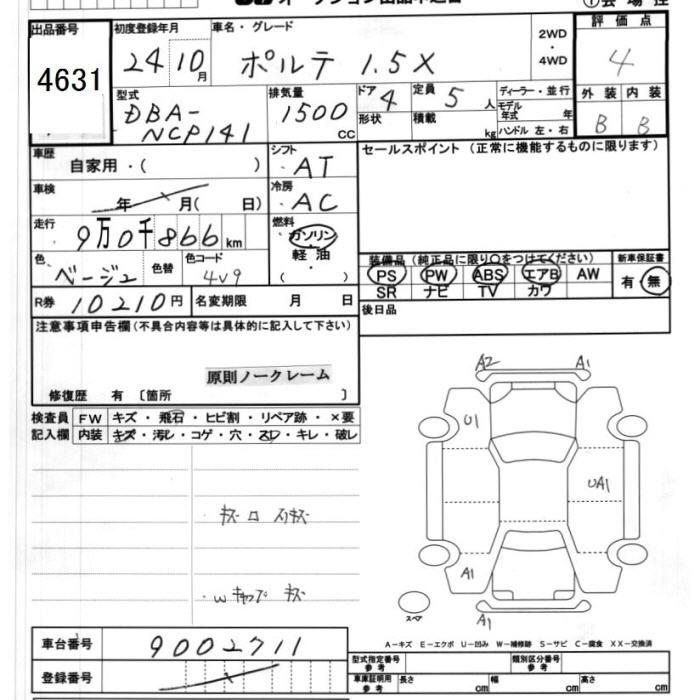 出品番号 初度登録年月 車名・グレード 2WD・4WD 評価点
4631 24 10月 ポルテ 1.5X 4
型式 排気量 ドア 定員 ディーラー・並行 外装 内装
DBA-NCP141 1500cc 4 5人 モデル年式 年 B B
形状 積載 kg ハンドル 左・右
車歴 シフト セールスポイント(正常に機能するものに限ります)
自家用・( ) AT
車検 冷房
年 月( 日) AC
走行 燃料
9万0千866km ガソリン・軽油・( )
色 色替 色コード 装備品(純正品に限り○をつけてください) 新車保証書
ベージュ 4V9 PS PW ABS エアB AW 有・無
SR ナビ TV カワ
R券 10210円 名変期限 月 日 後日品
注意事項申告欄(不具合内容等は具体的に記入して下さい)
原則ノークレーム
修復歴 有〔箇所 〕
検査員 FW キズ・飛石・ヒビ割・リペア跡・×要
記入欄 内装 キズ・汚レ・コゲ・穴・スレ・キレ・破レ
A2 A1
U1
UA1
A1
スペア A1
A-キズ E-エクボ U-凹み W-補修跡 S-サビ C-腐食 XX-交換済
車台番号 9002711 型式指定番号 参考 類別区分番号 参考
登録番号 車庫証明用 参考 長さ cm 幅 cm 高さ cm